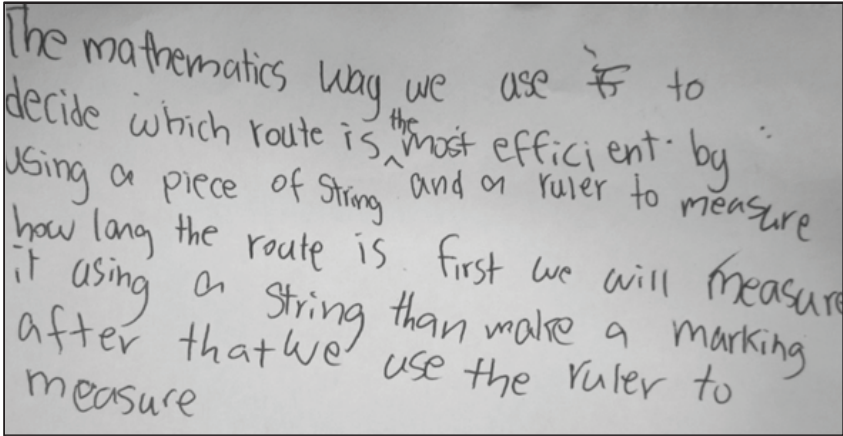 The mathematics way we use to
decide which route is the most efficient. by
using a piece of string and a ruler to measure
how lang the route is first we will measure
it using a string than make a marking
after that we use the ruler to
measure